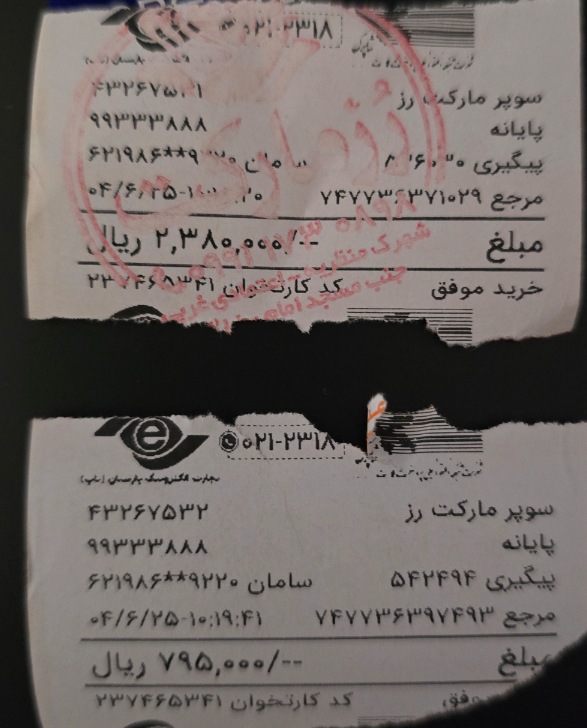 ۰۲۱-۲۳۱۸
سوپر مارکت رز
پایانه ۹۹۳۳۳۸۸۸
پیگیری سامان
مرجع ۷۴۷۷۳۶۳۷۱۰۲۹
مبلغ ۲,۳۸۰,۰۰۰/-- ریال
خرید موفق کد کارتخوان ۲۳۷۴۶۵۳۴۱
رز مارکت
شهرک منتظریه
جنب مسجد امام
۰۲۱-۲۳۱۸
تجارت الکترونیک پارسیان (تاپ)
سوپر مارکت رز ۴۳۲۶۷۵۳۲
پایانه ۹۹۳۳۳۸۸۸
پیگیری ۵۴۲۴۹۴ سامان ۶۲۱۹۸۶**۹۲۲۰
مرجع ۷۴۷۷۳۶۳۹۷۴۹۳ ۰۴/۶/۲۵-۱۰:۱۹:۴۱
مبلغ ۷۹۵,۰۰۰/-- ریال
کد کارتخوان ۲۳۷۴۶۵۳۴۱